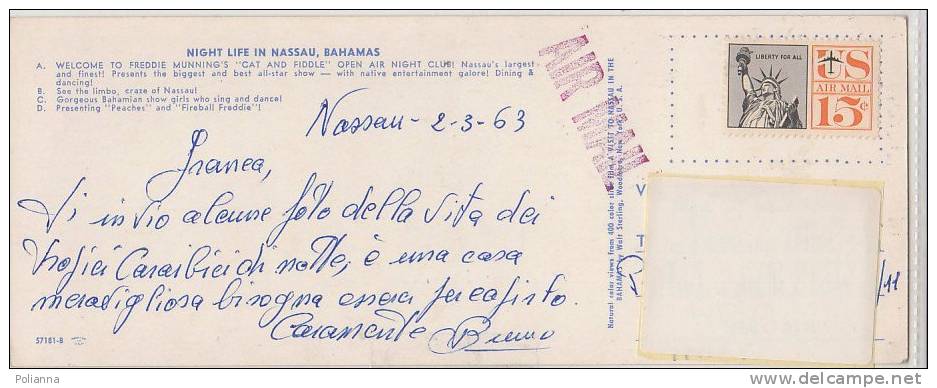 NIGHT LIFE IN NASSAU, BAHAMAS
A. WELCOME TO FREDDIE MUNNING'S "CAT AND FIDDLE" OPEN AIR NIGHT CLUB! Nassau's largest
and finest! Presents the biggest and best all-star show — with native entertainment galore! Dining &
dancing!
B. See the limbo, craze of Nassau!
C. Gorgeous Bahamian show girls who sing and dance!
D. Presenting "Peaches" and "Fireball Freddie"!
Nassau - 2-3-63
Franca,
Ti invio alcune foto della vita dei
Tropici Caraibici di notte, è una cosa
meravigliosa bisogna esserci per capirlo.
Caramente Bruno
57181-B
AIR MAIL
Natural color views from 400 color slide film A VISIT TO NASSAU IN THE
BAHAMAS by Walt Sterling, Woodmere, New York, U. S. A.
LIBERTY FOR ALL
US
AIR MAIL
15¢
V
T
/11
Polianna
delcampe.net